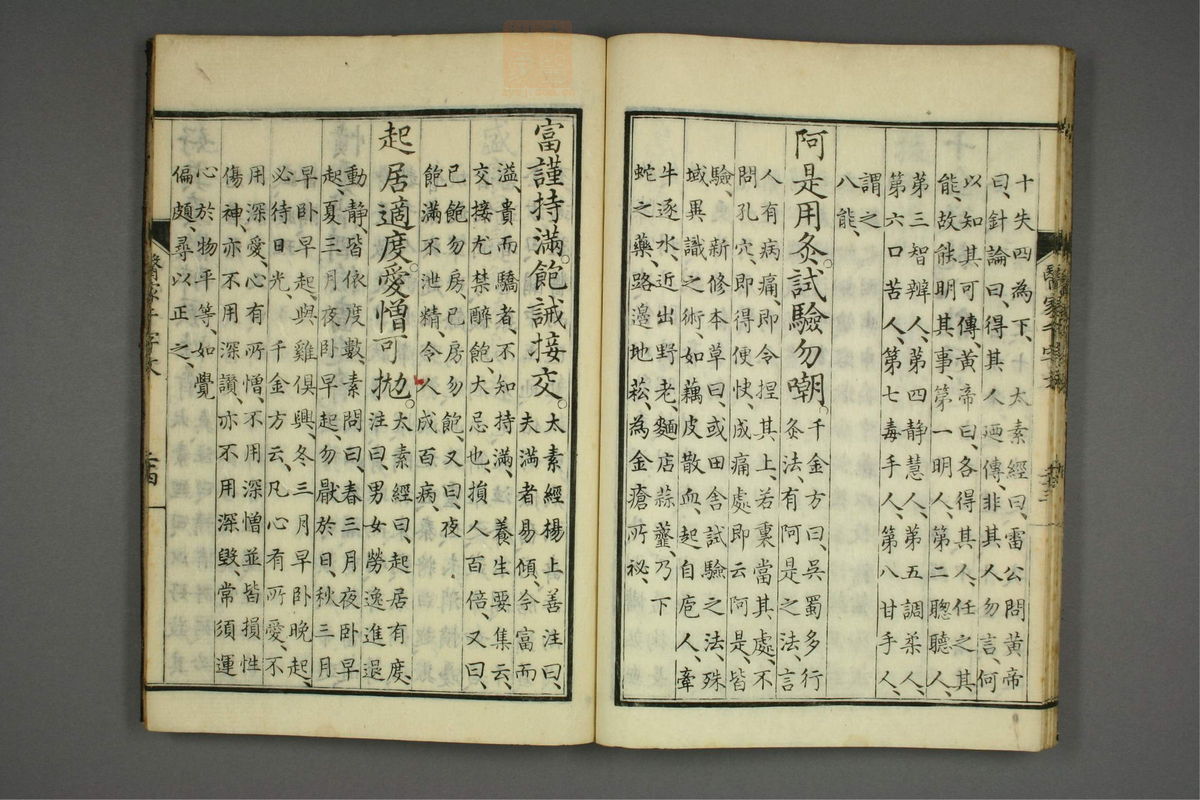 十失四為下、〇太素經曰、雷公問黃帝
曰、針論曰、得其人廼傳、非其人勿言、何
以知其可傳、黃帝曰、各得其人、任之其
能、故能明其事、第一明人、第二聰聽人、
第三智辨人、第四靜慧人、第五調柔人、
第六口苦人、第七毒手人、第八甘手人、
謂之
八能、
阿是用灸。試驗勿嘲。千金方曰、吳蜀多行
灸法、有阿是之法、言
人有病痛、即令捏其上、若裏當其處、不
問孔穴、即得便快、成痛處即云阿是、皆
驗、新修本草曰、或田舍試驗之法、殊
域異識之術、如藕皮散血、起自庖人、牽
牛逐水、近出野老、麵店蒜虀、乃下
蛇之藥、路邊地菘、為金瘡所祕、
富謹持滿。飽誡接交。太素經楊上善注曰、
夫滿者易傾、今富而
溢、貴而驕者、不知持滿、養生要集云、
交接尤禁醉飽、大忌也、損人百倍、又曰、
已飽勿房、已房勿飽、又曰、夜
飽滿不泄精、令人成百病、
起居適度。愛憎可拋。太素經曰、起居有度、
注曰、男女勞逸進退
動靜、皆依度數、素問曰、春三月夜卧早
起、夏三月夜卧早起、勿厭於日、秋三月
早卧早起、與雞俱興、冬三月早卧晚起、
必待日光、千金方云、凡心有所愛、不
用深愛、心有所憎、不用深憎、並皆損性
傷神、亦不用深讚、亦不用深毀、常須運
心於物平等、如覺
偏頗、尋以正之、
醫家千字文
二十四